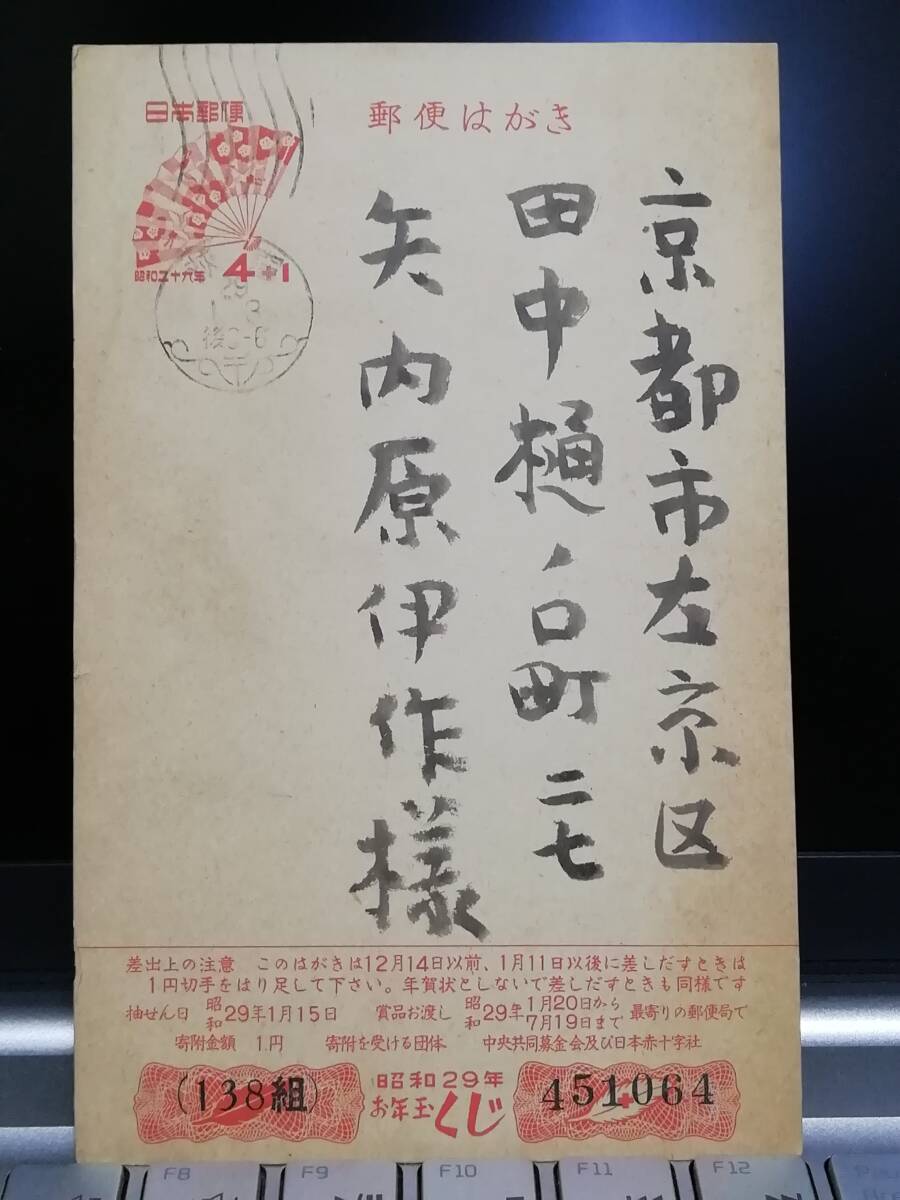 日本郵便
郵便はがき
昭和二十六年
4+1
29
後3-6
京都市左京区
田中樋ノ口町二七
矢内原伊作様
差出上の注意 このはがきは12月14日以前、1月11日以後に差しだすときは
1円切手をはり足して下さい。年賀状としないで差しだすときも同様です
抽せん日 昭和29年1月15日 賞品お渡し 昭和29年1月20日から7月19日まで 最寄りの郵便局で
寄附金額 1円 寄附を受ける団体 中央共同募金会及び日本赤十字社
(138組)
昭和29年
お年玉くじ
451064
F8
F9
F10
F11
F12